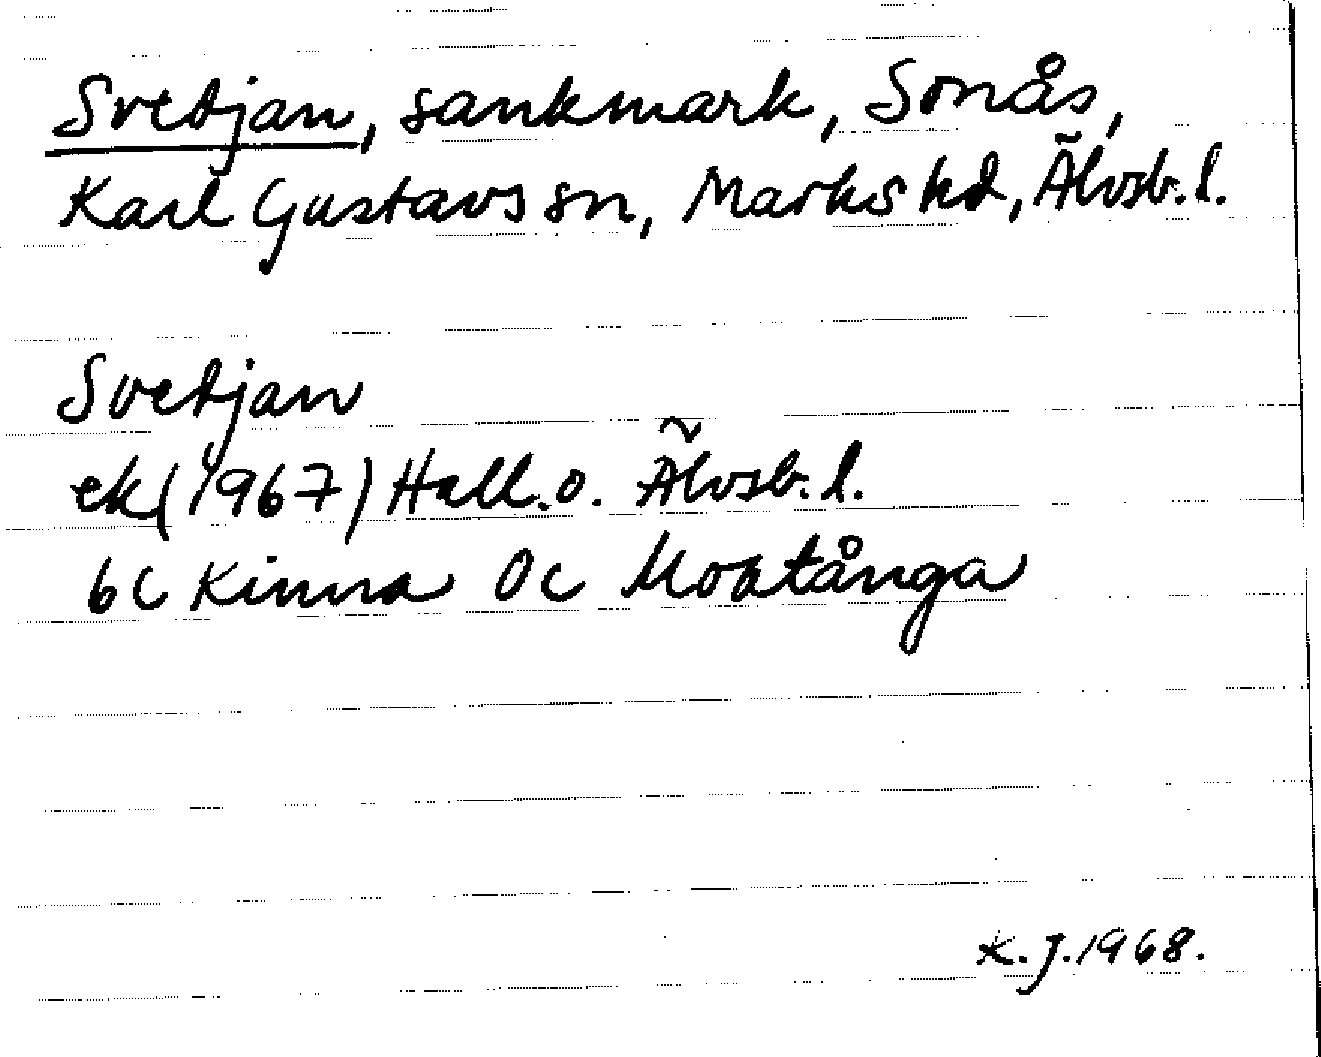 Svetjan, sankmark, Sonås,
Karl Gustavs sn, Marks hd, Älvsb. l.
Svetjan
ek (1967) Hall. o. Älvsb. l.
6c Kinna 0c Moatånga
K. J. 1968.